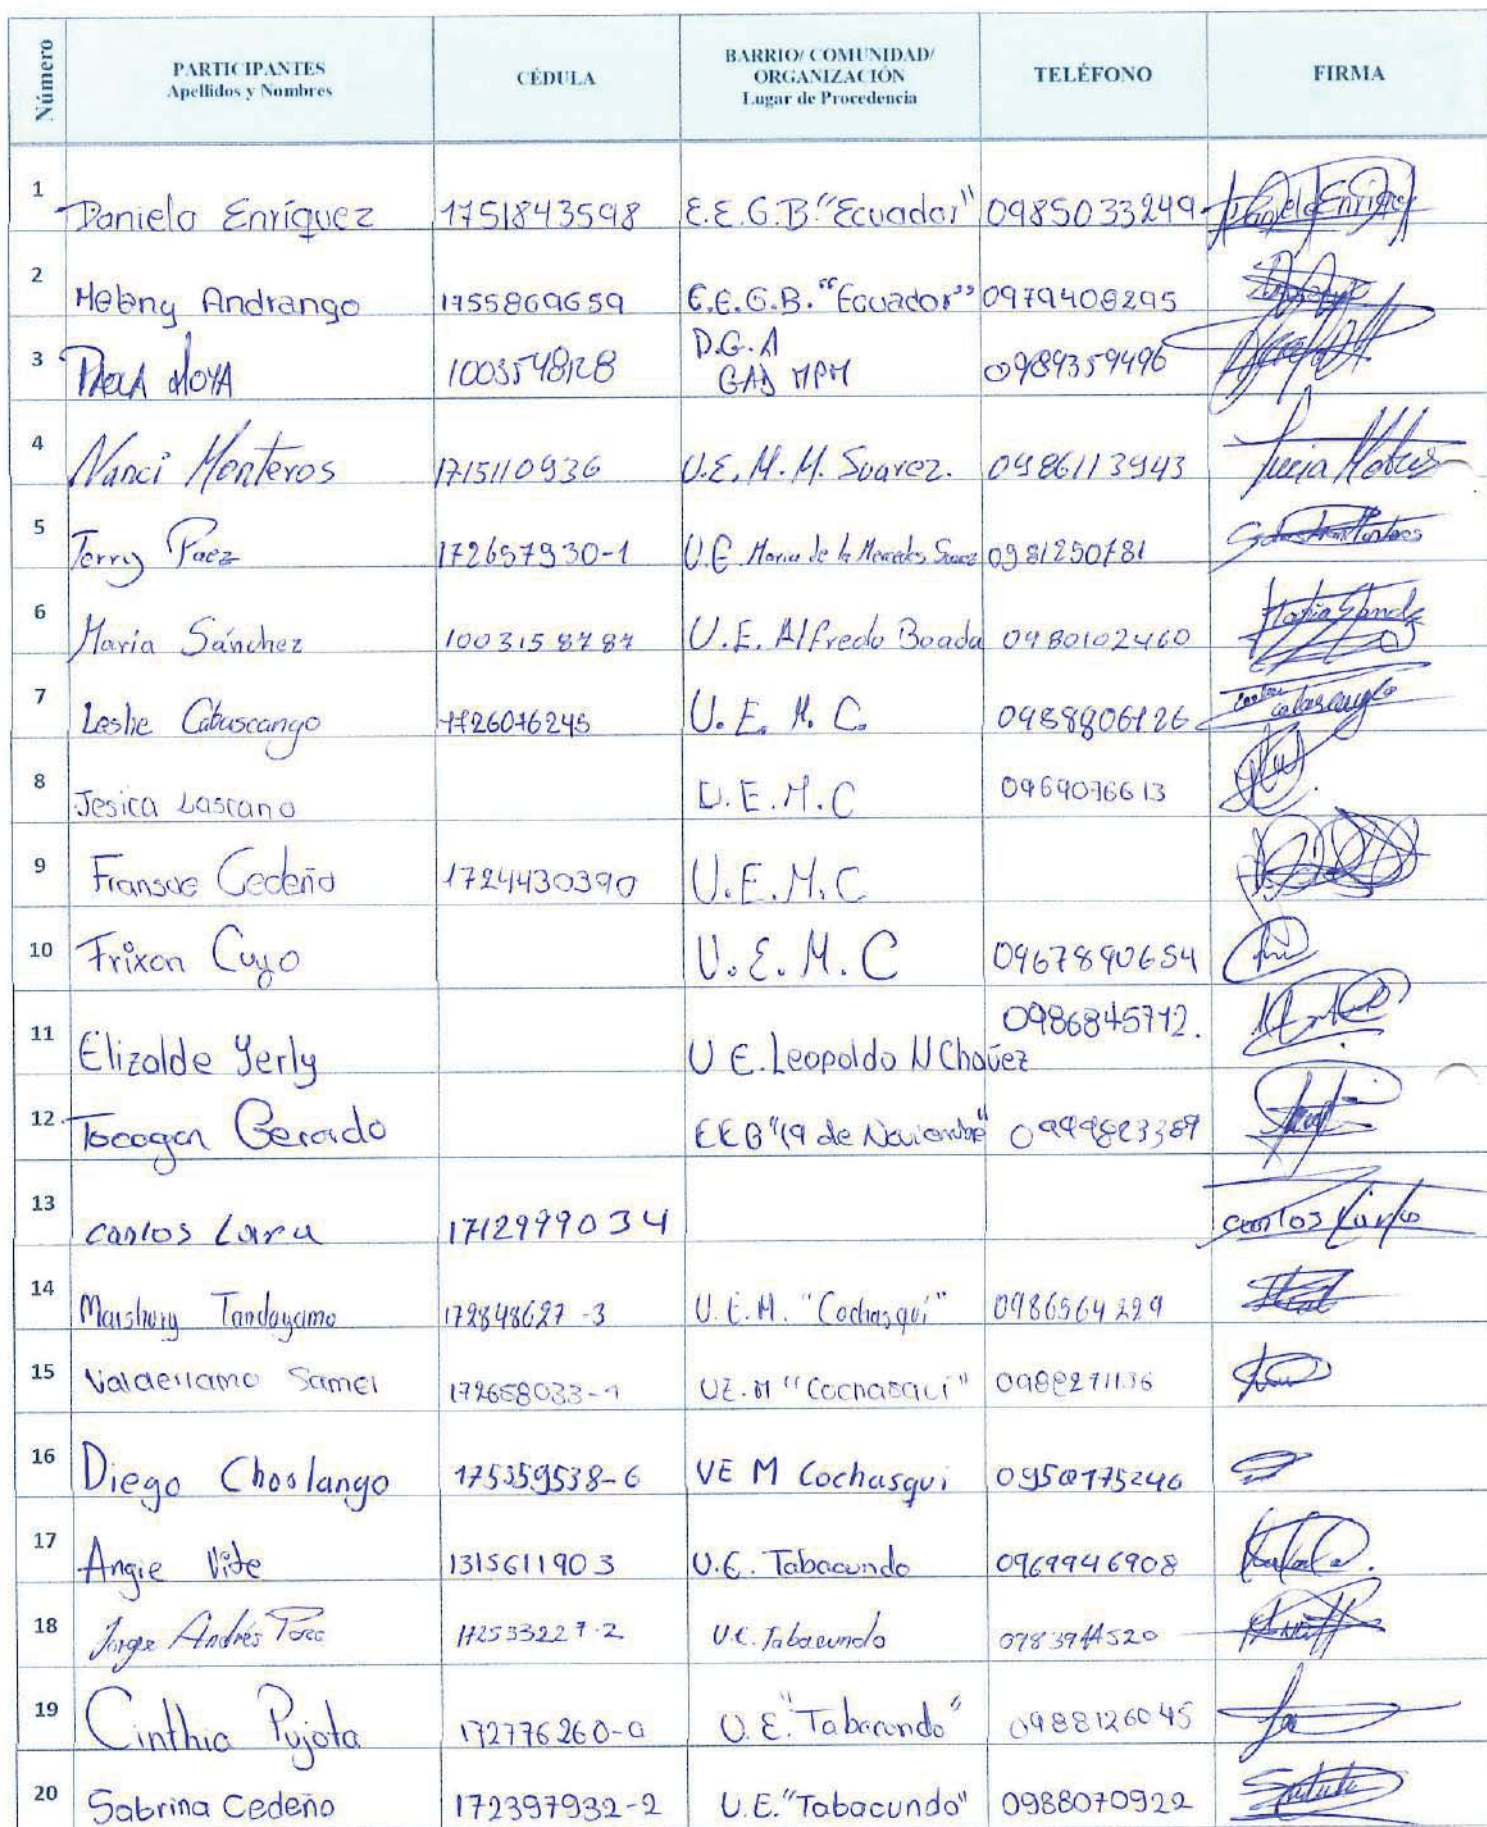 Número
PARTICIPANTES
Apellidos y Nombres
CÉDULA
BARRIO/ COMUNIDAD/
ORGANIZACIÓN
Lugar de Procedencia
TELÉFONO
FIRMA
1 Daniela Enríquez 1751843598 E.E.G.B. "Ecuador" 0985033249 Daniela Enríquez
2 Melany Andrango 1755869659 E.E.G.B. "Ecuador" 0979408295
3 PAOLA MOYA 1003548128 D.G.A
GAD MPM 0989359496
4 Nanci Monteros 1715110936 U.E. M. M. Suarez. 0986113943
5 Jerry Paez 172657930-1 U.E Maria de las Mercedes Suarez 0981250781
6 María Sánchez 1003158787 U.E. Alfredo Boada 0980102460 María Sánchez
7 Leslie Cabascango 1726076245 U. E. M. C. 0988806126 Cabascango
8 Jesica Lascano U.E.M.C 0969076613
9 Fransue Cedeño 1724430390 U.E.M.C
10 Frixon Cuyo U.E.M.C 0967890654
11 Elizalde Yerly U E. Leopoldo N Chávez 0986845712.
12 Tocagon Gerardo EEB "19 de Noviembre" 0999823389
13 Carlos Lara 1712999034 Carlos Lara
14 Tandayamo 172848627-3 U.E.M. "Cochasquí" 0986564229
15 Valderramo Samel 172658033-1 UE.M "Cochasqui" 0988271136
16 Diego Choslango 175359538-6 UE M Cochasqui 0950175246
17 Angie Vite 1315611903 U.E. Tabacundo 0969946908
18 Jorge Andrés Toro 172533227-2 U.E. Tabacundo
19 Cinthia Pujota 172776260-0 U.E. "Tabacundo" 0988126045
20 Sabrina Cedeño 172397932-2 U.E. "Tabacundo" 0988070922